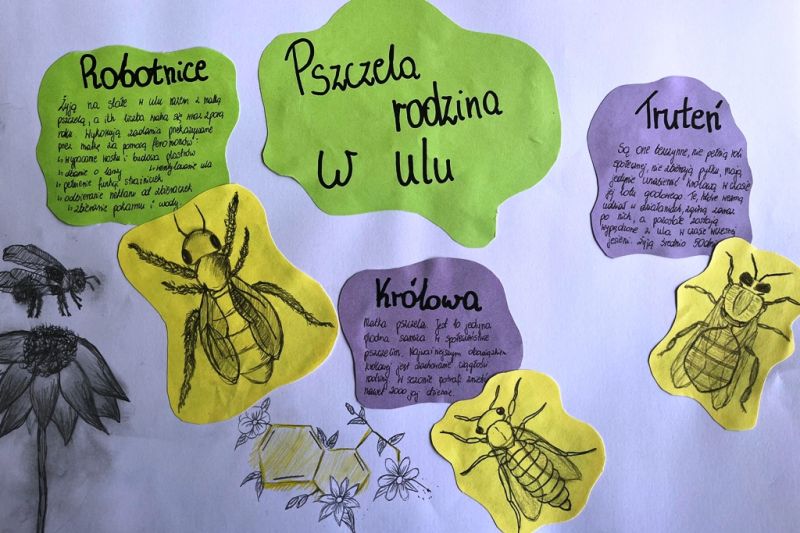 Pszczela
rodzina
w ulu
Robotnice
Żyją na stałe w ulu razem z matką
pszczelą, a ich liczba waha się wraz z porą
roku. Wykonują zadania przekazywane
przez matkę za pomocą feromonów:
wypacanie wosku i budowa plastrów
dbanie o larwy wentylowanie ula
pełnienie funkcji strażniczek
odbieranie nektaru od zbieraczek
zbieranie pokarmu i wody
Królowa
Matka pszczela. Jest to jedyna
płodna samica w społeczeństwie
pszczelim. Najważniejszym obowiązkiem
królowej jest zachowanie ciągłości
rodziny. W sezonie potrafi znieść
nawet 2000 jaj dziennie.
Truteń
Są one bezczynne, nie pełnią roli
społecznej, nie zbierają pyłku, mają
jedynie unasiennić królową w czasie
jej lotu godowego. Te, które wezmą
udział w działaniach, zginą zaraz
po nich, a pozostałe zostają
wypędzone z ula w czasie wczesnej
jesieni. Żyją średnio 50dni